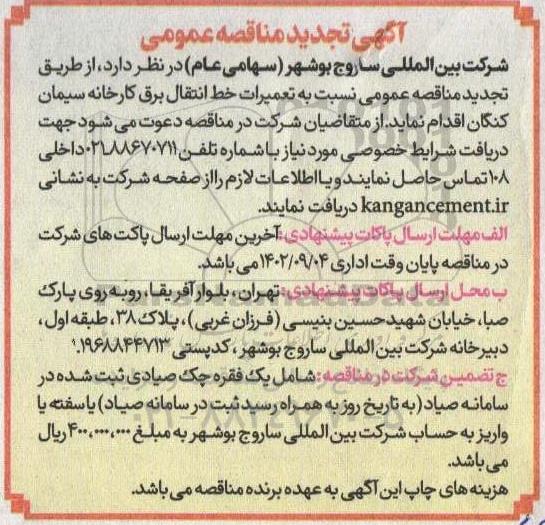 آگهی تجدید مناقصه عمومی
شرکت بین المللی ساروج بوشهر (سهامی عام) در نظر دارد، از طریق
تجدید مناقصه عمومی نسبت به تعمیرات خط انتقال برق کارخانه سیمان
کنگان اقدام نماید. از متقاضیان شرکت در مناقصه دعوت می شود جهت
دریافت شرایط خصوصی مورد نیاز با شماره تلفن ۰۲۱ـ۸۸۶۷۰۷۱۱ داخلی
۱۰۸ تماس حاصل نمایند و یا اطلاعات لازم را از صفحه شرکت به نشانی
kangancement.ir دریافت نمایند.
الف مهلت ارسال پاکات پیشنهادی: آخرین مهلت ارسال پاکت های شرکت
در مناقصه پایان وقت اداری ۱۴۰۲/۰۹/۰۴ می باشد.
ب محل ارسال پاکات پیشنهادی: تهران، بلوار آفریقا، روبه روی پارک
صبا، خیابان شهید حسین بنیسی (فرزان غربی)، پلاک ۳۸، طبقه اول،
دبیرخانه شرکت بین المللی ساروج بوشهر، کدپستی ۱۹۶۸۸۴۴۷۱۳.
ج تضمین شرکت در مناقصه: شامل یک فقره چک صیادی ثبت شده در
سامانه صیاد (به تاریخ روز به همراه رسید ثبت در سامانه صیاد) یا سفته یا
واریز به حساب شرکت بین المللی ساروج بوشهر به مبلغ ۴۰۰,۰۰۰,۰۰۰ ریال
می باشد.
هزینه های چاپ این آگهی به عهده برنده مناقصه می باشد.